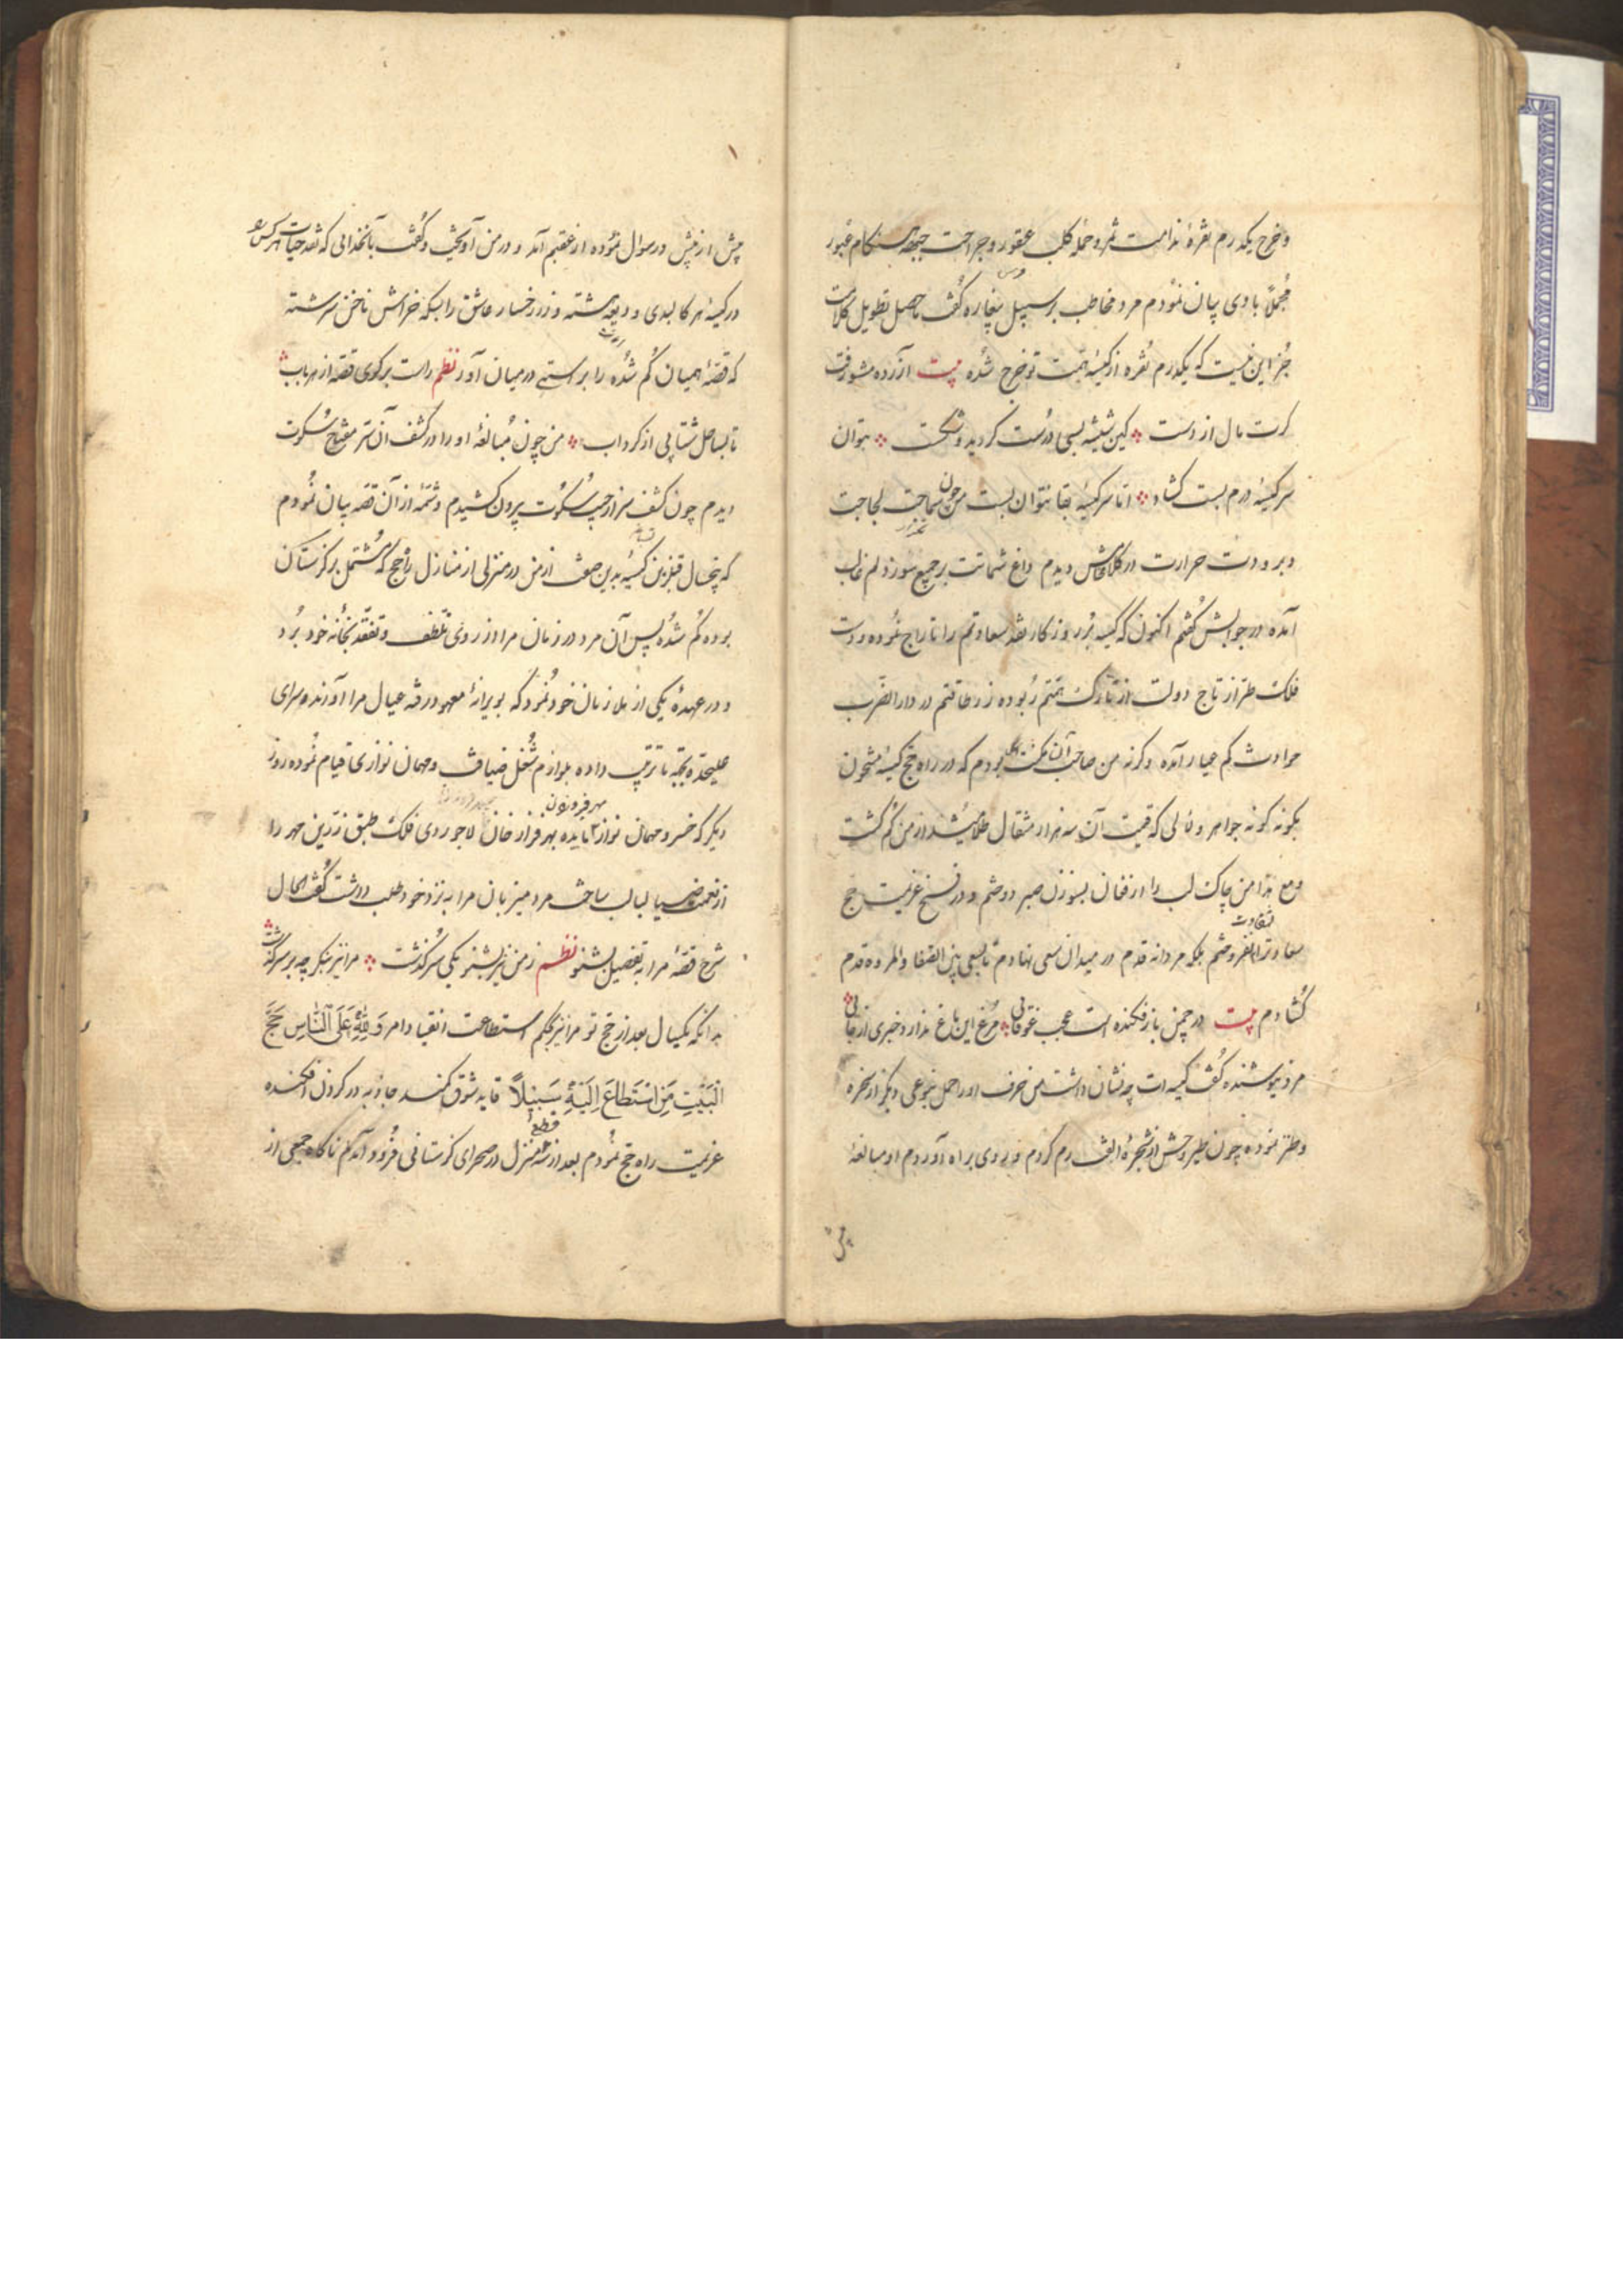 و خرج یکدرم نقرهٔ ندامت ثمر و حملهٔ کلب عقور و جراحت جبهه هنگام عبور
مجملاً با وی بیان نمودم مرد مخاطب بر سبیل بیغاره گفت حاصل تطویل کلامت
جز این نیست که یکدرم نقره از کیسهٔ همت تو خرج شده بیت آزرده مشو رفت
گرت مال از دست کین شیشه بسی درست گردید و شکست بتوان
سر کیسهٔ درم بست گشاد اما سر کیسهٔ بقا نتوان بست من چون سماجت لجاجت
و برودت حرارت در کلامش دیدم داغ شماتت بر جمیع سوز دلم غالب
آمده در جوابش گفتم اکنون که کیسه بُر روزگار نقد سعادتم را تاراج نموده و دست
فلک طراز تاج دولت از تارک همتم ربوده زر طاقتم در دار الضرب
حوادث کم عیار آمده وگرنه من صاحب آن مکنت بودم که در راه حج کیسهٔ مشحون
بگونه گونه جواهر و لآلی که قیمت آن سه هزار مثقال طلا میشد از من گم گشت
و مع هذا من چاک لب را از فغان بسوزن صبر دوختم و در فسخ عزیمت حج
سعادت را نفروختم بلکه مردانه قدم در میدان سعی نهادم تا بسعی بین الصفا والمروه قدم
گشادم بیت در چمن باز فکنده است عجب غوغائی مرغ این باغ ندارد خبری از جائی
مرد نیوشنده گفت کیسه ات چه نشان داشت من حرف او را حمل بنوعی دیگر از سخره
و طنز نموده چون طیر وحش از شجرهٔ الفت رم کردم و روی براه آوردم او مبالغهٔ
بیش
بیش از پیش در سوال نموده از عقبم آمد و در من آویخت و گفت بآنخدائی که نقد حیات هر کس را
در کیسهٔ هر کالبدی ودیعه هشته و زر رخسار عاشق را بسکه خراش ناخن سرشته
که قصهٔ همیان گم شده را براستی در میان آور نظم راست برگوی قصه از هر باب
تا بساحل شتابی از گرداب من چون مبالغهٔ او را در کشف آن سر مفتاح سکوت
دیدم چون کشف سر از جیب سکوت بیرون کشیدم و شمهٔ از آن قصه بیان نمودم
که پنجسال قبل ازین کیسهٔ بدین صفت از من در منزلی از منازل راه حج که مشتمل بر گزستان
بوده گم شده پس آن مرد در زمان مرا از روی تلطف و تفقد بخانهٔ خود برد
و در عهدهٔ یکی از ملازمان خود نمود که بویرانهٔ معهود رفته عیال مرا آورند و سرای
علیحده بجهة ما ترتیب داده بلوازم شغل ضیافت و مهمان نوازی قیام نموده روز
دیگر که خسرو مهمان نواز مایده مهر فراز خان لاجوردی فلک طبق زرین مهر را
از نعمت ضیا لبالب ساخت مرد میزبان مرا به نزد خود طلب داشت گفت الحال
شرح قصهٔ مرا به تفصیل بشنو نظم ز من نیز بشنو یکی سرگذشت مرا نیز بنگر چه بر سر گذشت
بدانکه یکسال بعد از حج تو مرا نیز بحکم استطاعت انقیاد امر وَلِلّٰهِ عَلَى النَّاسِ حِجُّ
الْبَيْتِ مَنِ اسْتَطَاعَ اِلَيْهِ سَبِيْلاً قاید شوق کمند جاذبه در گردن افکنده
عزیمت راه حج نمودم بعد از قطع سه منزل در صحرای گزستانی فرود آمدم ناگاه جمعی از